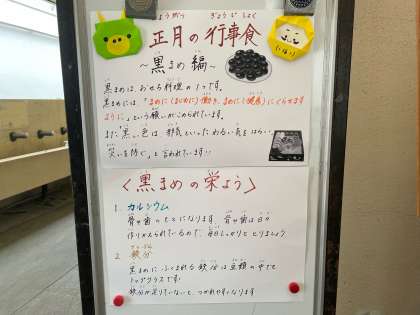 しょうがつ ぎょうじしょく
正月の行事食
～黒まめ編～
黒まめは、おせち料理の1つです。
黒まめには「まめに(まじめに)働き、まめに(健康)にくらせます
ように」という願いがこめられています。
また黒い色は邪気といったわるい気をはらい、
「災いを防ぐ」と言われています…
〈黒まめの栄よう〉
1. カルシウム
骨や歯のもとになります。骨や歯は日々
作りかえられているので、毎日しっかりととりましょう
2. 鉄分
黒まめにふくまれる鉄分は豆類の中でも
トップクラスです!
鉄分が足りていないと、つかれやすくなります